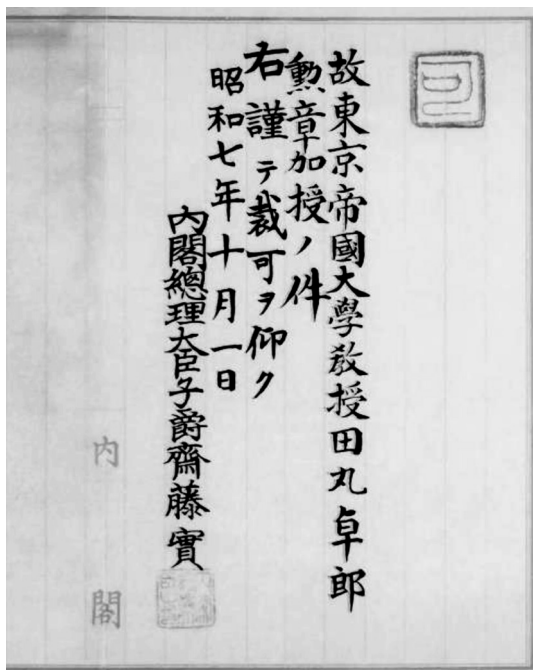 可
故東京帝國大學教授田丸卓郎
勲章加授ノ件
右謹テ裁可ヲ仰ク
昭和七年十月一日
内閣總理大臣子爵齋藤實
内閣